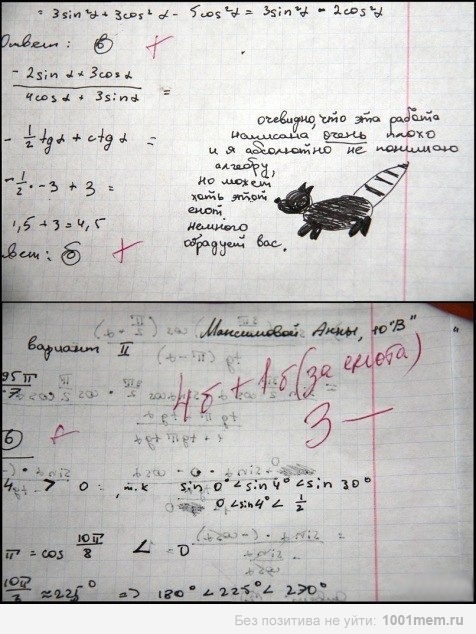 = 3sin²α + 3cos²α - 5cos²α = 3sin²α - 2cos²α
Ответ: в
-2sinα + 3cosα
4cosα + 3sinα
=
- 1/2 tgα + ctgα =
- 1/2 · -3 + 3 =
1,5 + 3 = 4,5
вет: б
очевидно, что эта работа
написана очень плохо
и я абсолютно не понимаю
алгебру,
но может
хоть этот
енот
немного
обрадует вас.
Максимовой Анны, 10 "В"
вариант II
4б + 1б (за енота)
3 —
б
4 > 0 , т.к sin 0° < sin 4° < sin 30°
0 < sin4° < 1/2
π = cos 10π/8 < 0
10π/3 ≈ 225° => 180° < 225° < 270°
Без позитива не уйти: 1001mem.ru